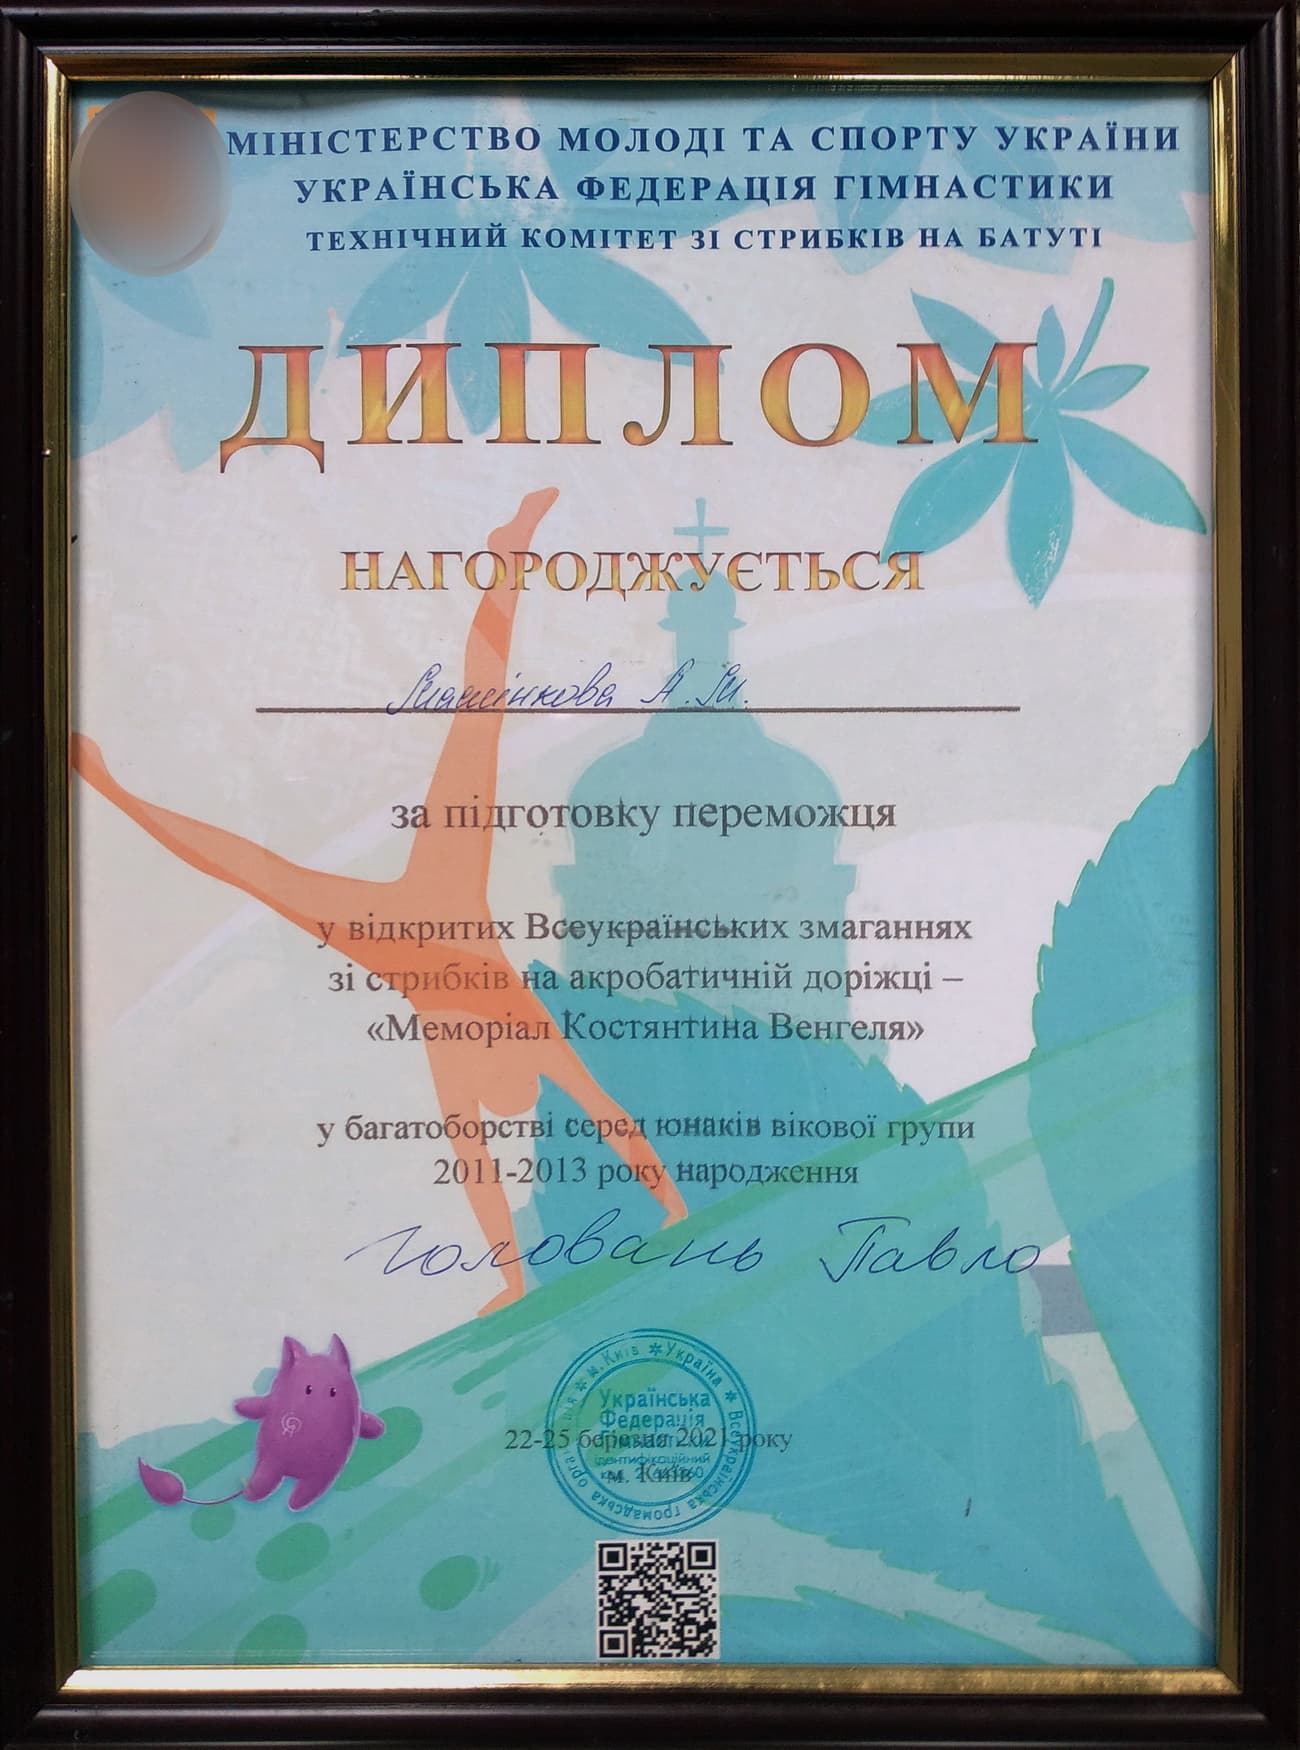 МІНІСТЕРСТВО МОЛОДІ ТА СПОРТУ УКРАЇНИ
УКРАЇНСЬКА ФЕДЕРАЦІЯ ГІМНАСТИКИ
ТЕХНІЧНИЙ КОМІТЕТ ЗІ СТРИБКІВ НА БАТУТІ
ДИПЛОМ
НАГОРОДЖУЄТЬСЯ
А. М.
за підготовку переможця
у відкритих Всеукраїнських змаганнях
зі стрибків на акробатичній доріжці –
«Меморіал Костянтина Венгеля»
у багатоборстві серед юнаків вікової групи
2011-2013 року народження
Головань Павло
м. Київ ✲ Україна ✲ Всеукраїнська громадська організація ✲
Українська
Федерація
Гімнастики
ідентифікаційний
22-25 березня 2021 року
м. Київ